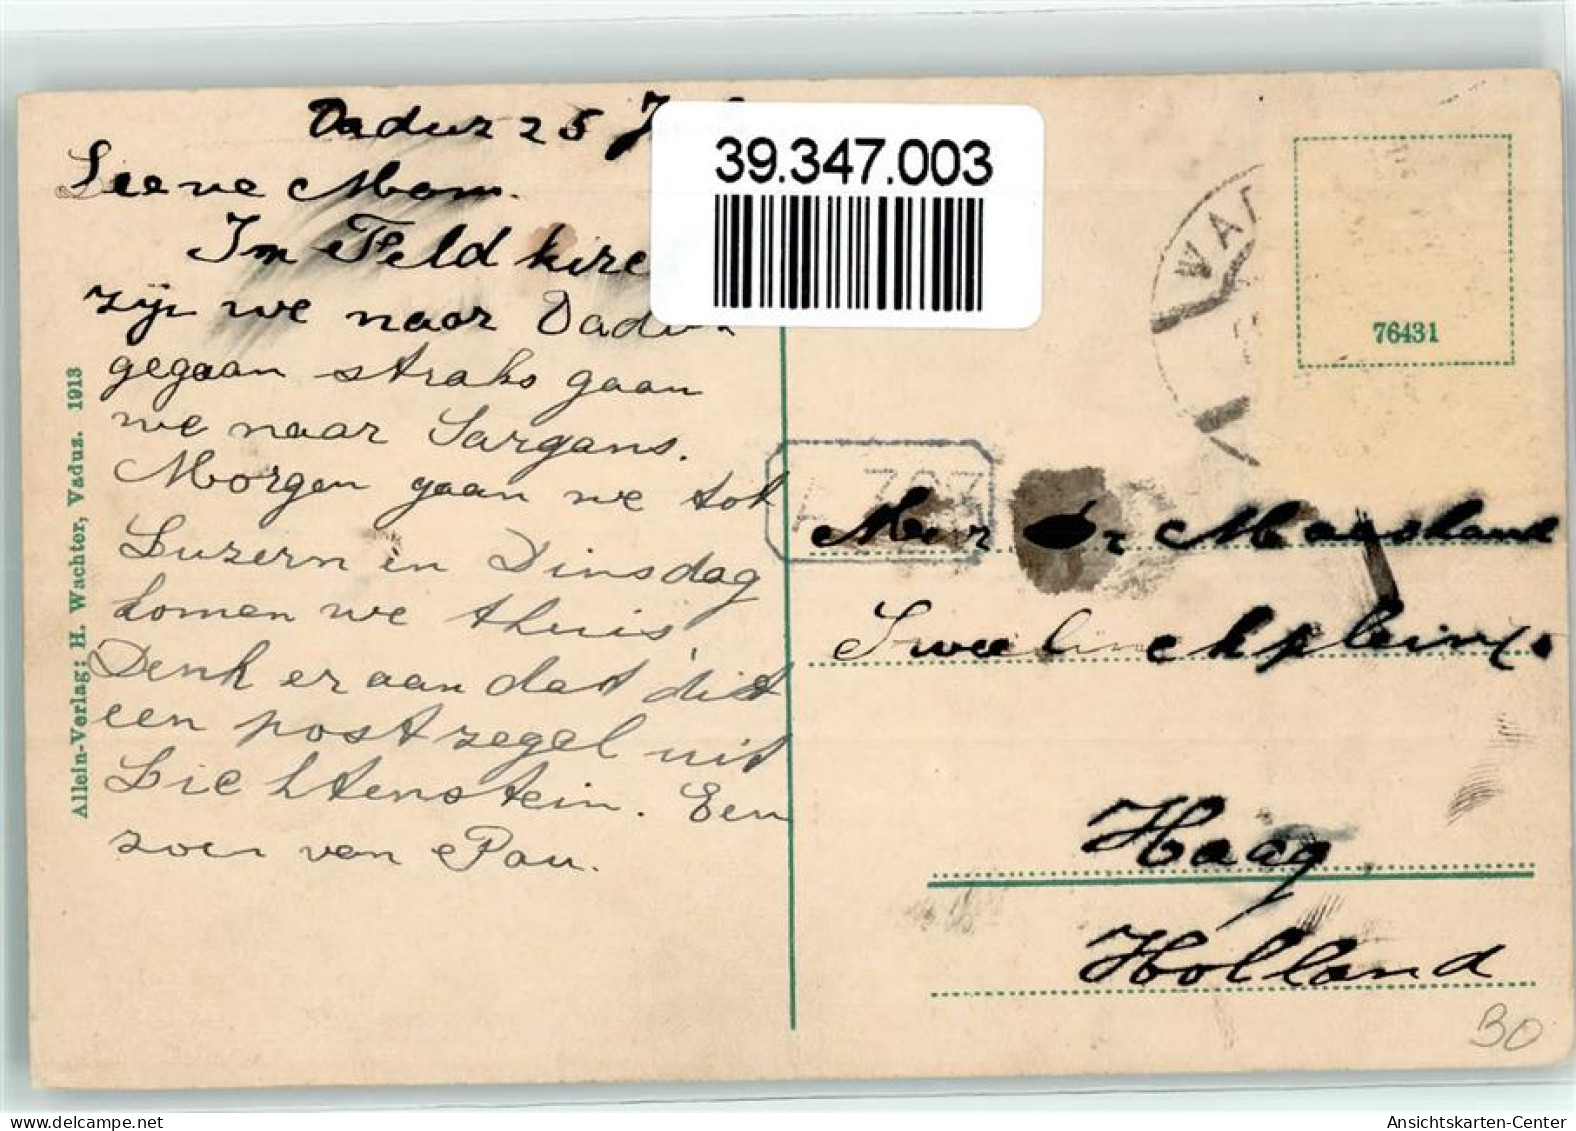 Vaduz 25
39.347.003
Lieve Mom.
In Feldkirc
zijn we naar Vaduz
gegaan straks gaan
we naar Sargans.
Morgen gaan we tot
Luzern en Dinsdag
komen we thuis
Denk er aan dat dit
een postzegel uit
Liechtenstein. Een
zoen van Pau.
Allein-Verlag: H. Wachter, Vaduz. 1913
VAD
76431
Mevr Dr Maasland
Sweelinckplein
Haag
Holland
BO
Ansichtskarten-Center